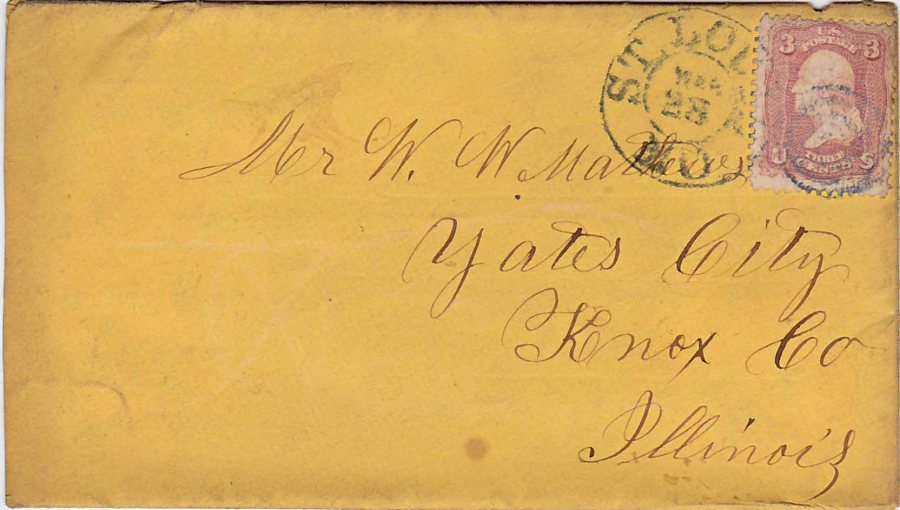 ST. LOU
MO
U.S.
POSTAGE
3 3
U S
THREE
CENTS
Mr W. W Mathews
Yates City
Knox Co
Illinois